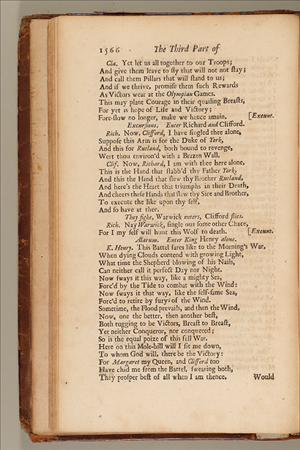 1566 The Third Part of
Cla. Yet let us all together to our Troops;
And give them leave to fly that will not stay;
And call them Pillars that will stand to us;
And if we thrive, promise them such Rewards
As Victors wear at the Olympian Games.
This may plant Courage in their quailing Breasts,
For yet is hope of Life and Victory;
Fore-slow no longer, make we hence amain. [Exeunt.
Excursions. Enter Richard and Clifford.
Rich. Now, Clifford, I have singled thee alone,
Suppose this Arm is for the Duke of York,
And this for Rutland, both bound to revenge,
Wert thou environ'd with a Brazen Wall.
Clif. Now, Richard, I am with thee here alone,
This is the Hand that stabb'd thy Father York,
And this the Hand that slew thy Brother Rutland,
And here's the Heart that triumphs in their Death,
And cheers these Hands that slew thy Sire and Brother,
To execute the like upon thy self,
And so have at thee.
They fight, Warwick enters, Clifford flies.
Rich. Nay Warwick, single out some other Chace,
For I my self will hunt this Wolf to death. [Exeunt.
Alarum. Enter King Henry alone.
K. Henry. This Battel fares like to the Morning's War,
When dying Clouds contend with growing Light,
What time the Shepherd blowing of his Nails,
Can neither call it perfect Day nor Night.
Now sways it this way, like a mighty Sea,
Forc'd by the Tide to combat with the Wind:
Now sways it that way, like the self-same Sea,
Forc'd to retire by fury of the Wind.
Sometime, the Flood prevails, and then the Wind,
Now, one the better, then another best,
Both tugging to be Victors, Breast to Breast,
Yet neither Conqueror, nor conquered;
So is the equal poize of this fell War.
Here on this Mole-hill will I sit me down,
To whom God will, there be the Victory:
For Margaret my Queen, and Clifford too
Have chid me from the Battel, swearing both,
They prosper best of all when I am thence. Would